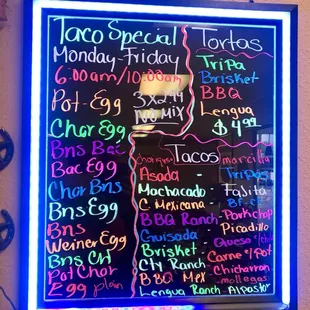 Taco Special
Monday-Friday
6:00am/10:00am
Pot-Egg
3x2.99
NO MIX
Chor Egg
Bns Bac
Bac Egg
Chor Bns
Bns Egg
Bns
Weiner Egg
Bns CH
Pot Chor
Egg plain
Tortas
Tripa
Brisket
BBQ
Lengua
$4.99
Tacos
morcilla
Asada
Machacado
C. Mexicana
BBQ Ranch
Guisada
Brisket
Cty Ranch
BBQ Mex
Lengua Ranch
Tripas
Fajita
Porkchop
Picadillo
Queso
Carne y Pap
Chicharron
mollegas
Al pastor